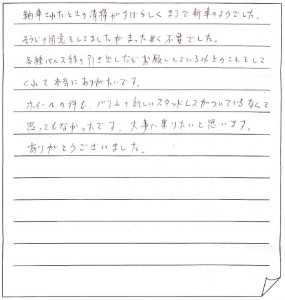 納車されたときの清掃がすばらしくまるで新車のようでした。
そうじの用意をしてましたがまったく不要でした。
各種パネル類の引き出しなどお願いしている以上のことをして
くれて本当にありがたいです。
ホイールの件も、バリ山の新しいスタッドレスがついているなんて
思ってもなかったです。大事に乗りたいと思います。
ありがとうございました。